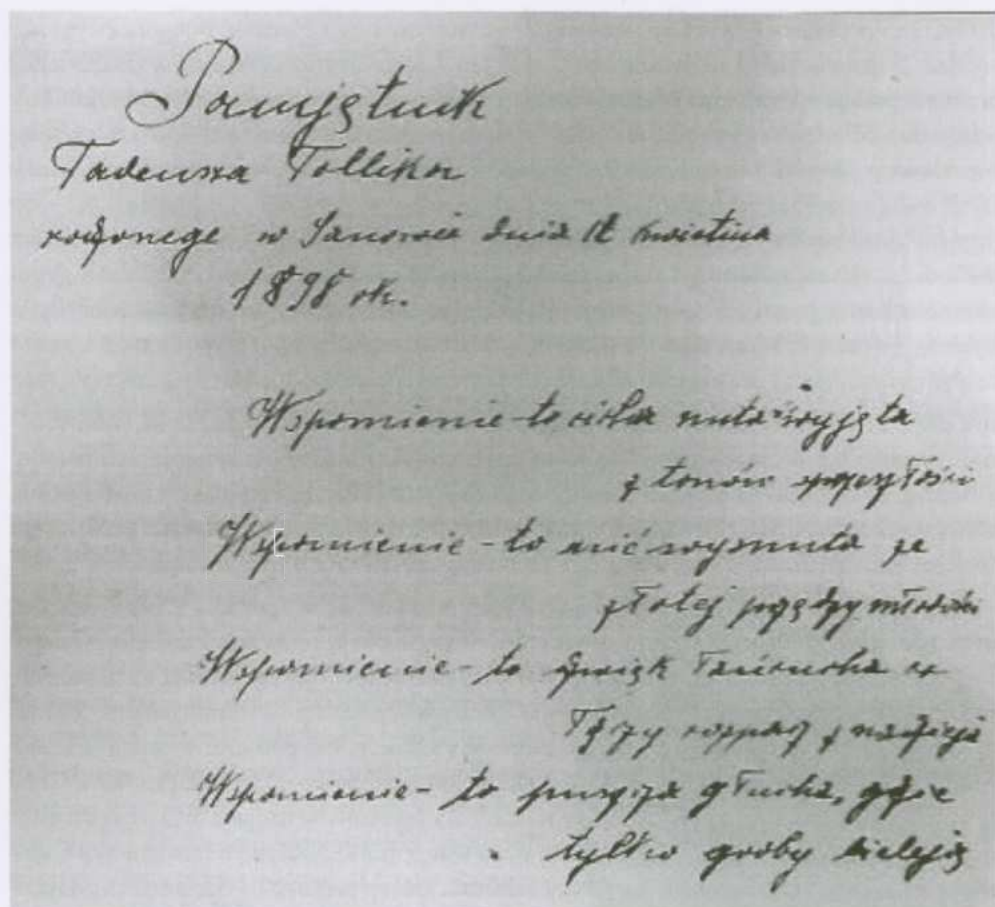 Pamiętnik
Tadeusza Tollika
rodzonego w Janowie dnia kwietnia
1898 rk.
Wspomnienie - to cicha nuta wyjęta
z tonów przeszłości
Wspomnienie - to nić wysnuta ze
złotej przędzy młodości
Wspomnienie - to dźwięk łańcucha co
łączy rozpacz z nadzieją
Wspomnienie - to puszcza głucha, gdzie
tylko groby bieleją